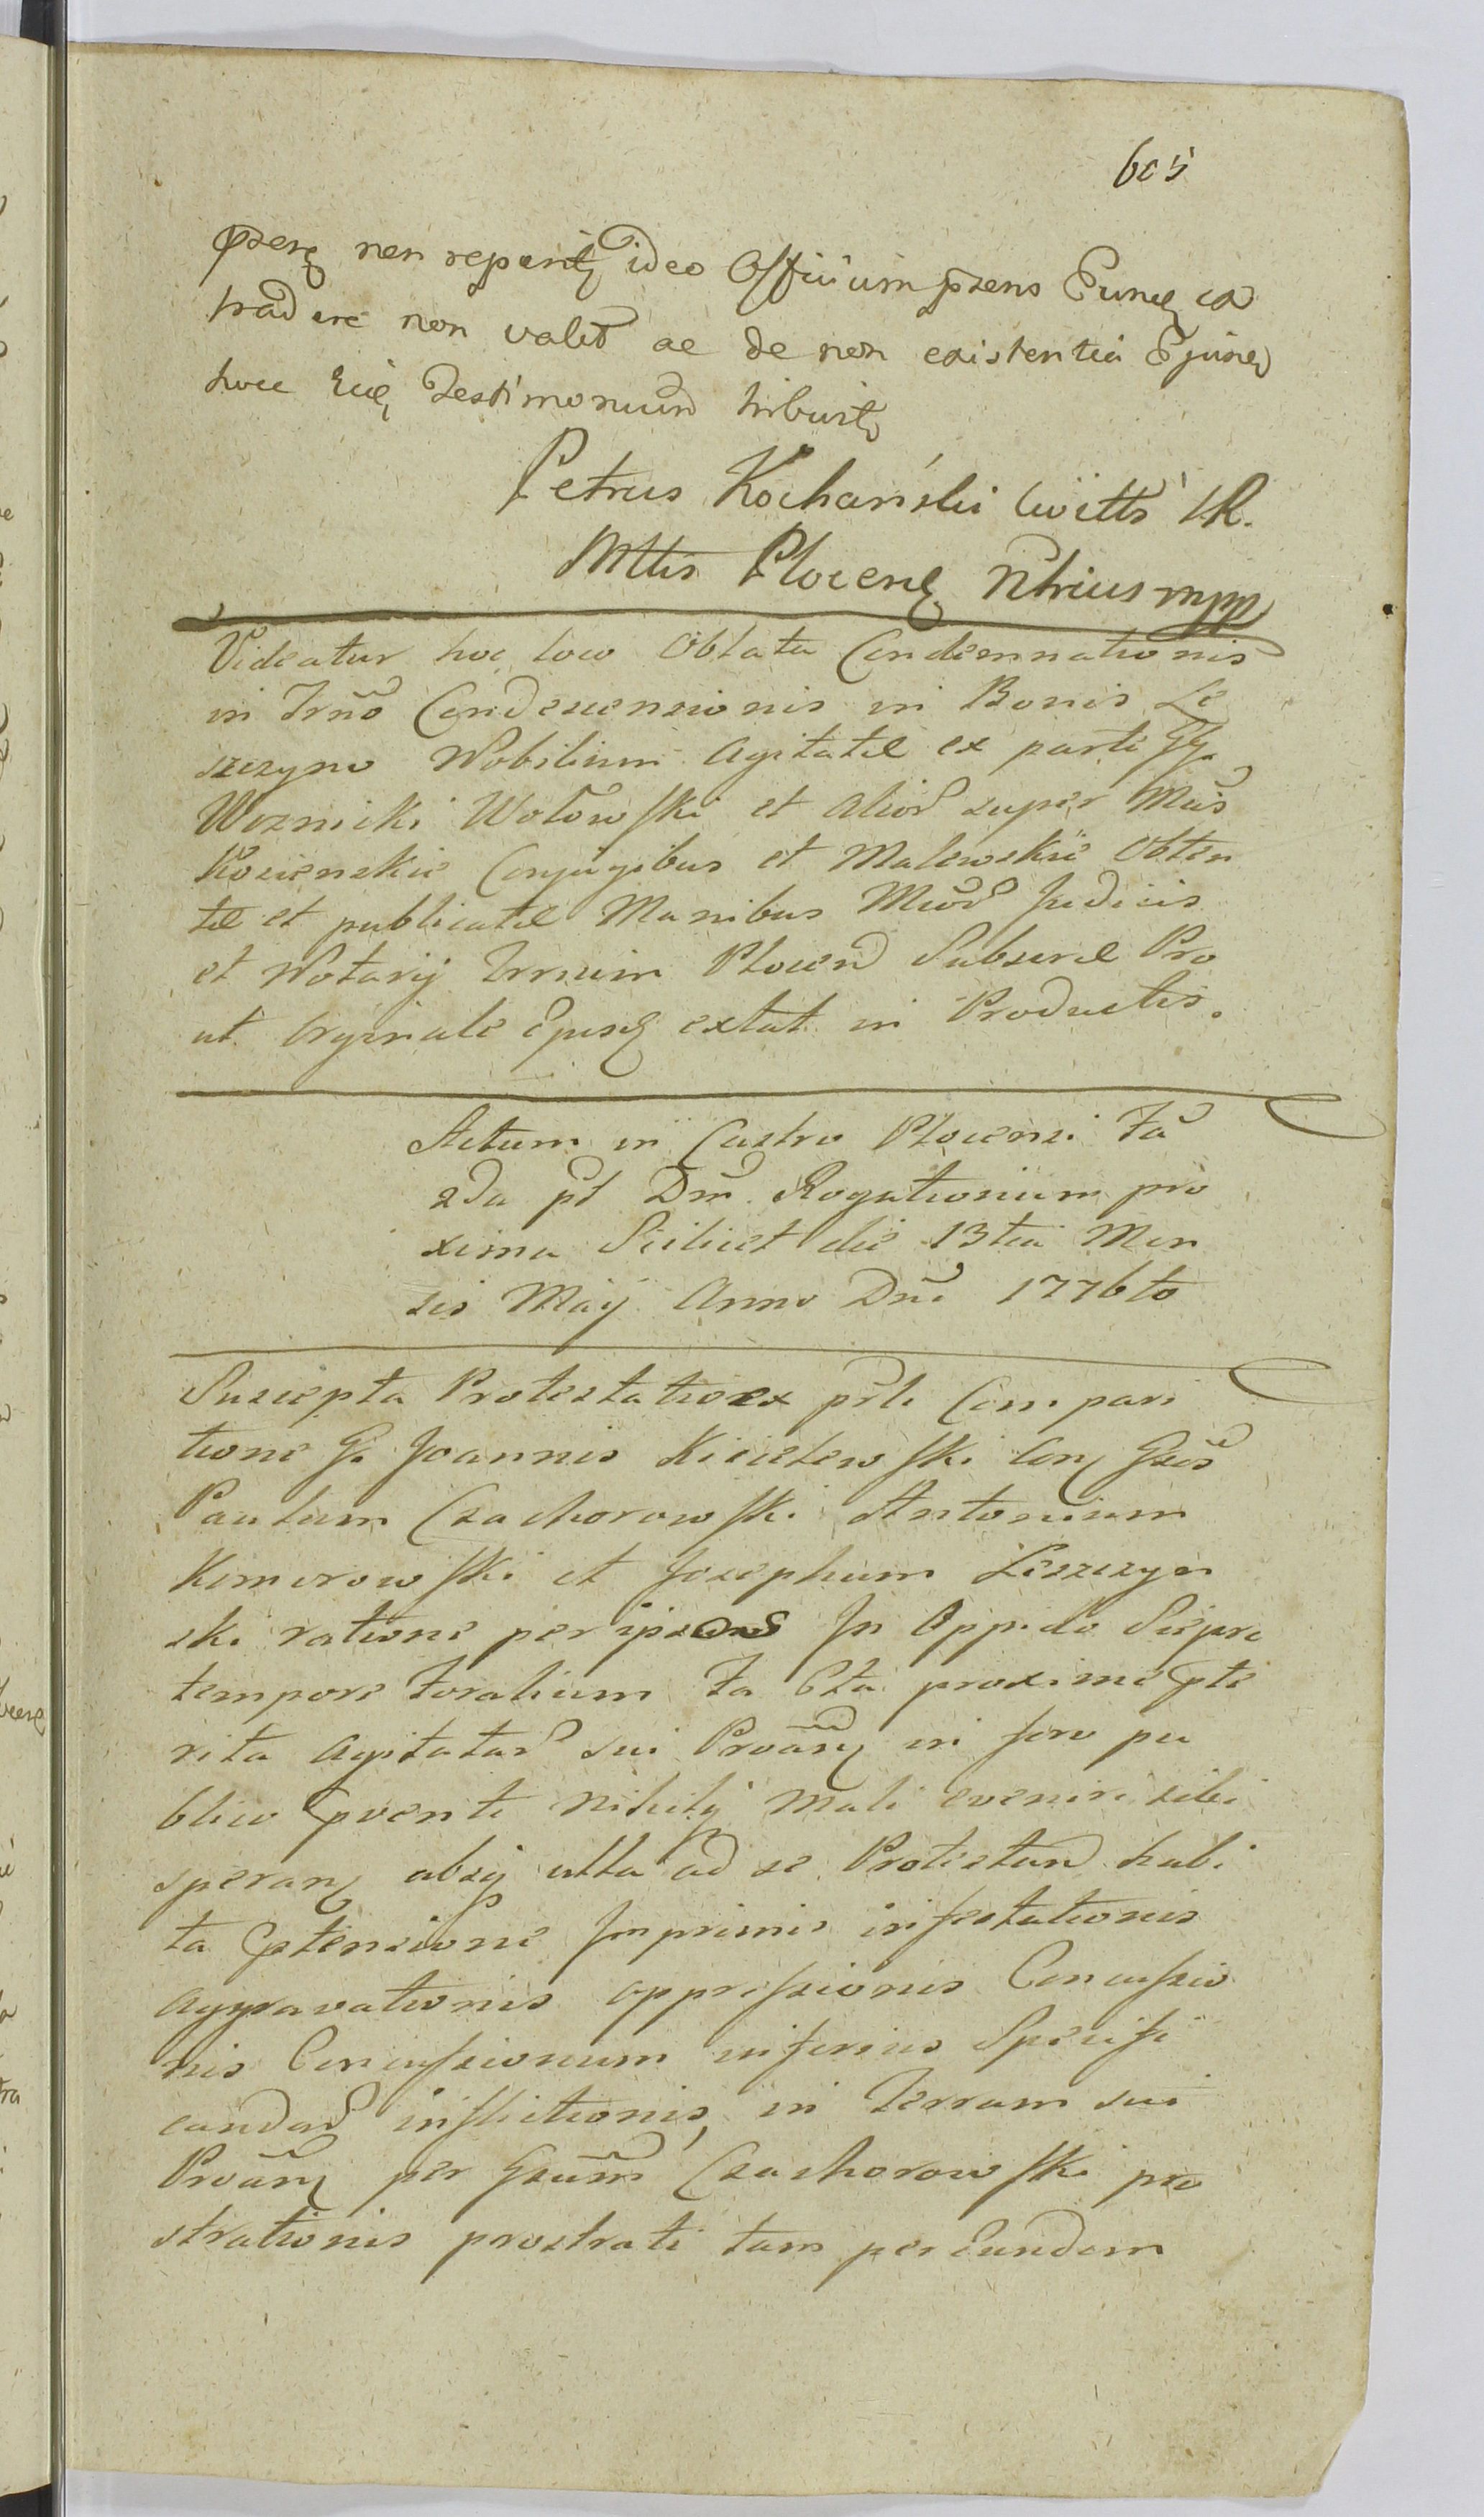 605
non ideo Officium pzens
tradere non valet ac de non existentia
hocce Testimonium tribuit
Petrus Kochański Civitts SR.
Mttis Plocens Ntrius mpp
Videatur hoc loco Oblata Condemnationis
in Trno Condescensionis in Bonis Le
szczyno Nobilium Agitatae ex parte GG.
Woznicki Wołowski et alior super Mcis
Kosienskie Conjugibus et Malewskie Obten
tae et publicatae Manibus Mcor Judicis
et Notarij Trrium Plocen Subscrae Pro
ut Originale extat in Productis.
Actum in Castro Plocensi Fa
2da pt Dm Rogationum pro
xima Scilicet die 13tia Men
sis Maij Anno Dni 1776to
Suscepta Protestatio ex psli Compari
tione G. Joannis Kicielewski Con Gsos
Paulum Czachorowski Antonium
Komorowski et Josephum Leszczyn
ski ratione per ipsos In Oppido Sierpc
tempore Foralium Fa 6ta proxime pte
rita Agitatar sui Proan in foro pu
blico pventi Nihilq mali evenire sibi
speran absq ulla ad se Protestan habi
ta ptensione Imprimis infestationis
Aggravationis oppressionis Concussio
nis Concussionum inferius Specifi
candar inflictionis, in Terram sui
Proan per Gsum Czachorowski pro
strationis prostrati tam per Eundem